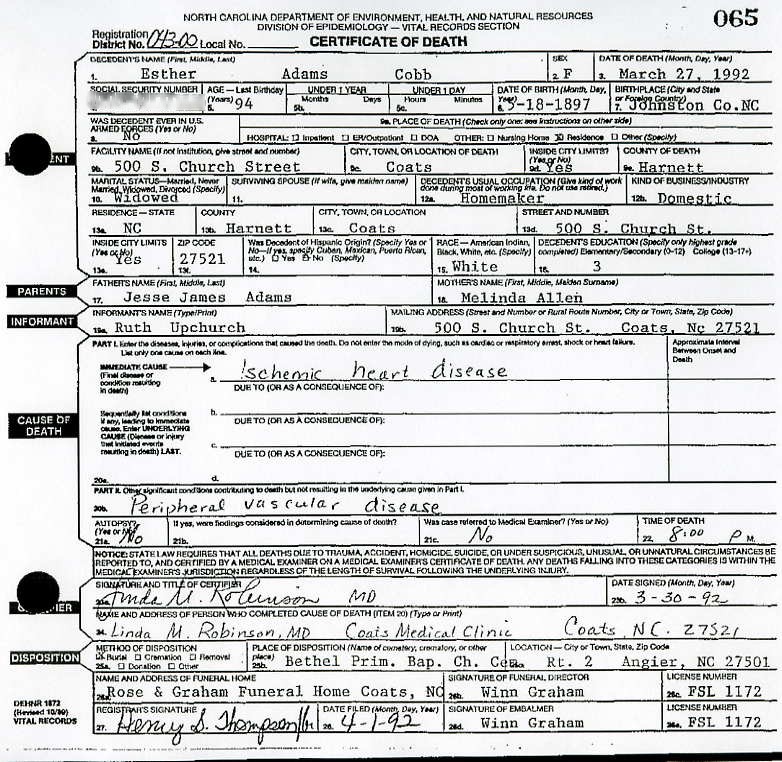 NORTH CAROLINA DEPARTMENT OF ENVIRONMENT, HEALTH, AND NATURAL RESOURCES
DIVISION OF EPIDEMIOLOGY – VITAL RECORDS SECTION
065
Registration District No. 043-00 Local No.
CERTIFICATE OF DEATH
DECEDENT'S NAME (First, Middle, Last) SEX DATE OF DEATH (Month, Day, Year)
1. Esther Adams Cobb 2. F 3. March 27, 1992
SOCIAL SECURITY NUMBER AGE – Last Birthday (Years) UNDER 1 YEAR UNDER 1 DAY DATE OF BIRTH (Month, Day, Year) BIRTHPLACE (City and State or Foreign County)
94 5b. Months Days 5c. Hours Minutes 6. 3-18-1897 7. Johnston Co.NC
WAS DECEDENT EVER IN U.S. ARMED FORCES (Yes or No) 9a. PLACE OF DEATH (Check only one: see instructions on other side)
8. No HOSPITAL: ☐ Inpatient ☐ ER/Outpatient ☐ DOA OTHER: ☐ Nursing Home ☒ Residence ☐ Other (Specify)
FACILITY NAME (If not institution, give street and number) CITY, TOWN, OR LOCATION OF DEATH INSIDE CITY LIMITS? (Yes or No) COUNTY OF DEATH
9b. 500 S. Church Street 9c. Coats 9d. Yes 9e. Harnett
MARITAL STATUS–Married, Never Married, Widowed, Divorced (Specify) SURVIVING SPOUSE (If wife, give maiden name) DECEDENT'S USUAL OCCUPATION (Give kind of work done during most of working life. Do not use retired.) KIND OF BUSINESS/INDUSTRY
10. Widowed 11. 12a. Homemaker 12b. Domestic
RESIDENCE – STATE COUNTY CITY, TOWN, OR LOCATION STREET AND NUMBER
13a. NC 13b. Harnett 13c. Coats 13d. 500 S. Church St.
INSIDE CITY LIMITS (Yes or No) ZIP CODE Was Decedent of Hispanic Origin? (Specify Yes or No–If yes, specify Cuban, Mexican, Puerto Rican, etc.) ☐ Yes ☒ No (Specify) RACE – American Indian, Black, White, etc. (Specify) DECEDENT'S EDUCATION (Specify only highest grade completed) Elementary/Secondary (0-12) College (13-17+)
13e. Yes 13f. 27521 14. 15. White 16. 3
PARENTS
FATHER'S NAME (First, Middle, Last) MOTHER'S NAME (First, Middle, Maiden Surname)
17. Jesse James Adams 18. Melinda Allen
INFORMANT
INFORMANT'S NAME (Type/Print) MAILING ADDRESS (Street and Number or Rural Route Number, City or Town, State, Zip Code)
19a. Ruth Upchurch 19b. 500 S. Church St. Coats, Nc 27521
PART I. Enter the diseases, injuries, or complications that caused the death. Do not enter the mode of dying, such as cardiac or respiratory arrest, shock or heart failure. List only one cause on each line. Approximate Interval Between Onset and Death
IMMEDIATE CAUSE (Final disease or condition resulting in death)
a. Ischemic heart disease
DUE TO (OR AS A CONSEQUENCE OF):
CAUSE OF DEATH
Sequentially list conditions if any, leading to immediate cause. Enter UNDERLYING CAUSE (Disease or injury that initiated events resulting in death) LAST.
b.
DUE TO (OR AS A CONSEQUENCE OF):
c.
DUE TO (OR AS A CONSEQUENCE OF):
20a. d.
PART II. Other significant conditions contributing to death but not resulting in the underlying cause given in Part I.
20b. Peripheral vascular disease
AUTOPSY? (Yes or No) If yes, were findings considered in determining cause of death? Was case referred to Medical Examiner? (Yes or No) TIME OF DEATH
21a. No 21b. 21c. No 22. 8:00 P M.
NOTICE: STATE LAW REQUIRES THAT ALL DEATHS DUE TO TRAUMA, ACCIDENT, HOMICIDE, SUICIDE, OR UNDER SUSPICIOUS, UNUSUAL, OR UNNATURAL CIRCUMSTANCES BE
REPORTED TO, AND CERTIFIED BY A MEDICAL EXAMINER ON A MEDICAL EXAMINER'S CERTIFICATE OF DEATH. ANY DEATHS FALLING INTO THESE CATEGORIES IS WITHIN THE
MEDICAL EXAMINER'S JURISDICTION REGARDLESS OF THE LENGTH OF SURVIVAL FOLLOWING THE UNDERLYING INJURY.
SIGNATURE AND TITLE OF CERTIFIER DATE SIGNED (Month, Day, Year)
23a. Linda M. Robinson MD 23b. 3-30-92
NAME AND ADDRESS OF PERSON WHO COMPLETED CAUSE OF DEATH (ITEM 20) (Type or Print)
24. Linda M. Robinson, MD Coats Medical Clinic Coats NC. 27521
DISPOSITION
METHOD OF DISPOSITION PLACE OF DISPOSITION (Name of cemetery, crematory, or other place) LOCATION – City or Town, State, Zip Code
☒ Burial ☐ Cremation ☐ Removal
25a. ☐ Donation ☐ Other 25b. Bethel Prim. Bap. Ch. Cem. Rt. 2 Angier, NC 27501
NAME AND ADDRESS OF FUNERAL HOME SIGNATURE OF FUNERAL DIRECTOR LICENSE NUMBER
26a. Rose & Graham Funeral Home Coats, NC 26b. Winn Graham 26c. FSL 1172
DEHNR 1872
(Revised 10/89)
VITAL RECORDS
REGISTRAR'S SIGNATURE DATE FILED (Month, Day, Year) SIGNATURE OF EMBALMER LICENSE NUMBER
27. Henry S. Thompson 28. 4-1-92 26d. Winn Graham 26e. FSL 1172